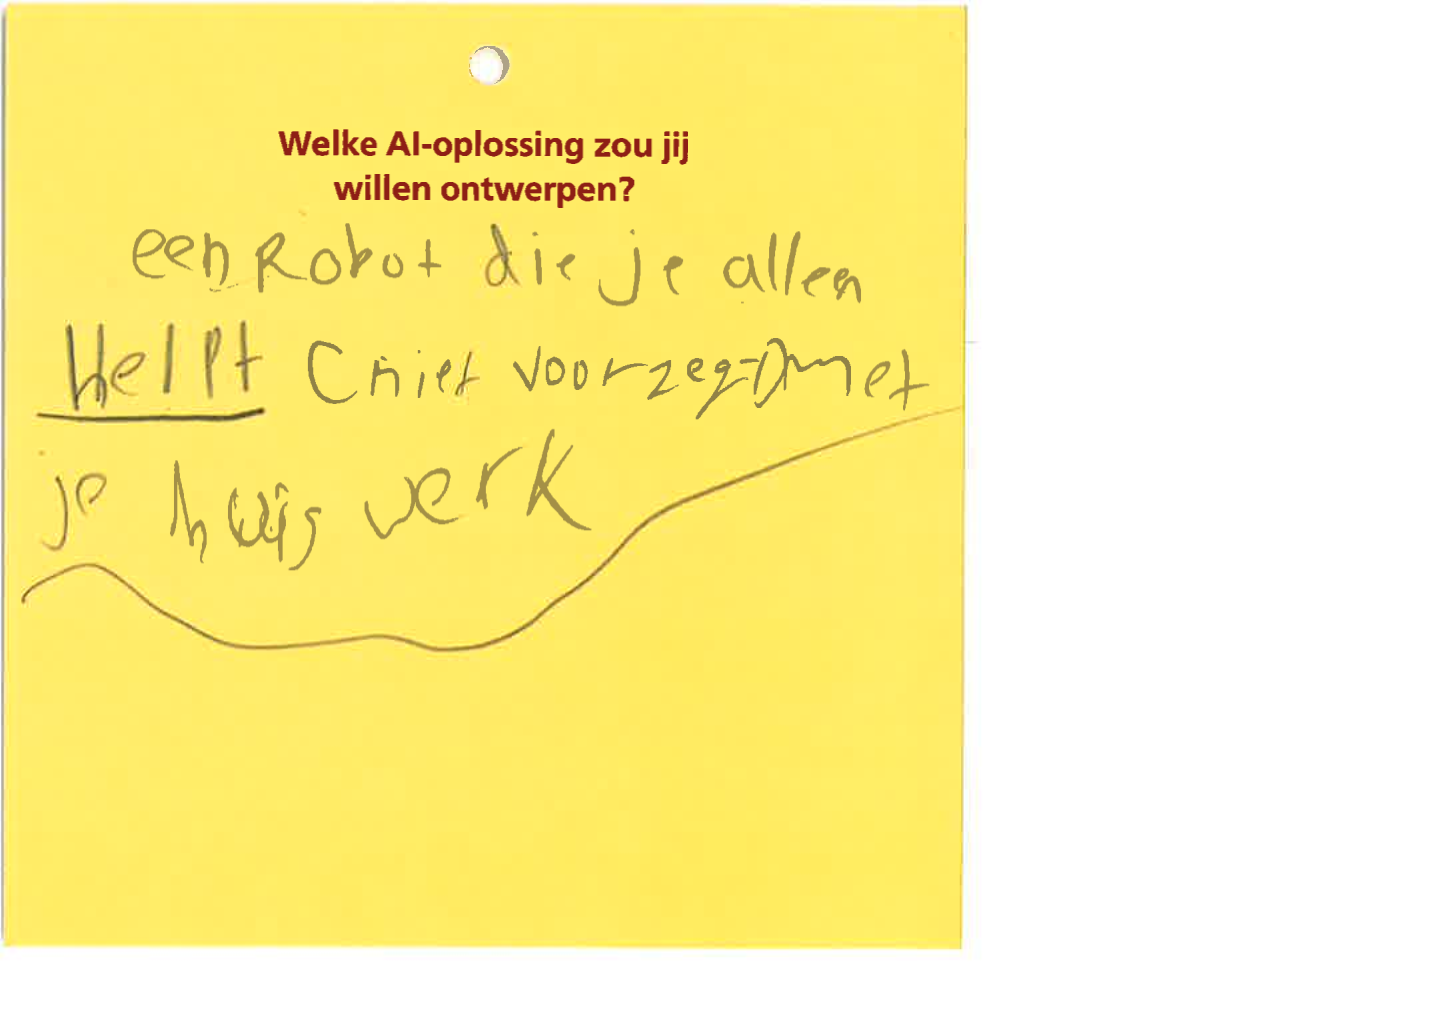 Welke AI-oplossing zou jij
willen ontwerpen?
een Robot die je allen
Helpt (niet voorzegt) met
je huis werk